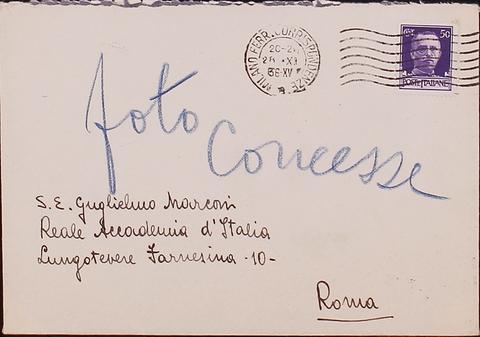 MILANO FERR. CORRISPONDENZE
20-21
XI
36-XV
50
POSTE ITALIANE
foto
Concesse
S. E. Guglielmo Marconi
Reale Accademia d'Italia
Lungotevere Farnesina -10-
Roma